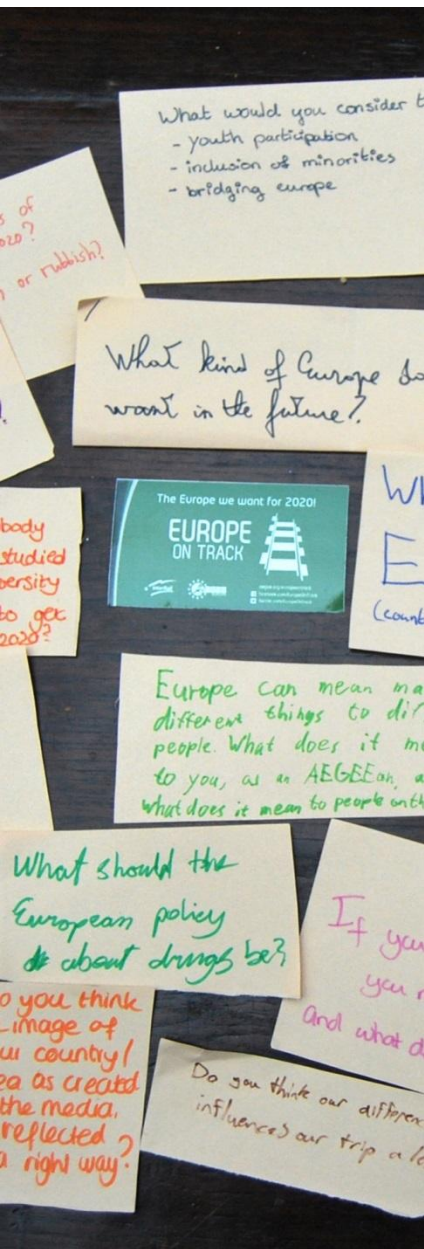 What would you consider t
- youth participation
- inclusion of minorities
- bridging europe
s of
2020?
or rubbish?
What kind of Europe do
want in the future?
The Europe we want for 2020!
EUROPE
ON TRACK
Wh
E
(count
body
studied
versity
to get
2020?
Europe can mean ma
different things to dif
people. What does it me
to you, as an AEGEEan, a
what does it mean to people on th
What should the
European policy
about drugs be?
If you
you
and what d
o you think
image of
ur country/
ea as created
the media,
reflected
a right way?
Do you think our differen
influences our trip a lo